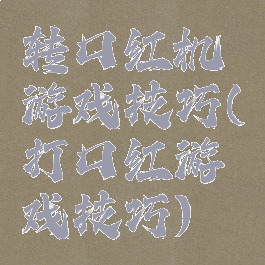 转口红机
游戏技巧(
打口红游
戏技巧)